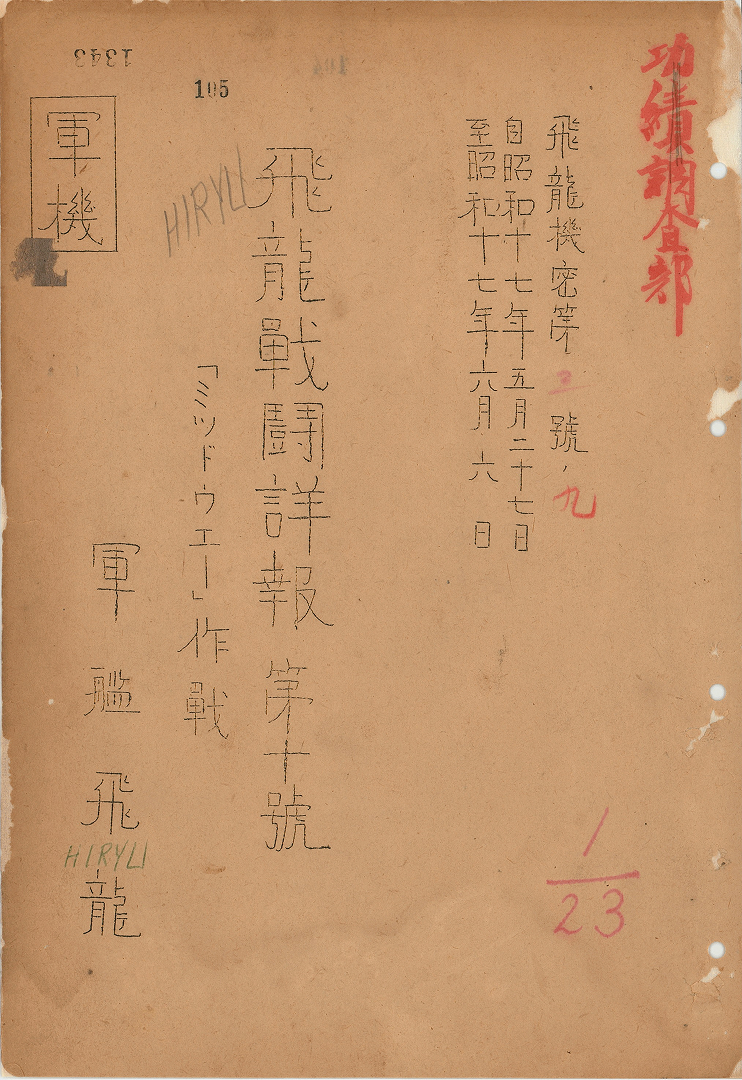 功績調査部
飛龍機密第 号ノ九
自昭和十七年五月二十七日
至昭和十七年六月六日
飛龍戰闘詳報第十號
HIRYU
「ミッドウエー」作戰
105
軍艦飛龍
HIRYU
軍機
1343
1/23